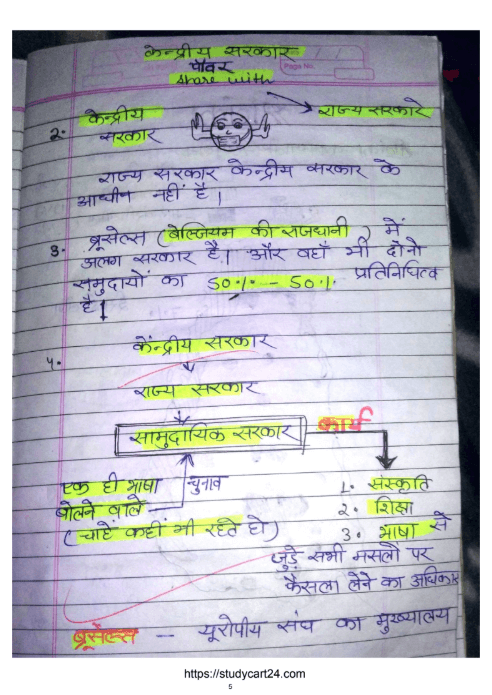 केन्द्रीय सरकार
पॉवर
Share with
Page No.
राज्य सरकारे
2. केन्द्रीय
सरकार
राज्य सरकार केन्द्रीय सरकार के
आधीन नहीं है।
3. ब्रूसेल्स (बेल्जियम की राजधानी) में
अलग सरकार है। और वहाँ भी दोनो
समुदायों का 50% - 50% प्रतिनिधित्व
है।
4.
केंन्द्रीय सरकार
राज्य सरकार
सामुदायिक सरकार
कार्य
एक ही भाषा
बोलने वाले
(चाहें कहीं भी रहते हो)
चुनाव
1. संस्कृति
2. शिक्षा
3. भाषा से
जुड़े सभी मसलो पर
फैसला लेने का अधिकार
ब्रूसेल्स - यूरोपीय संघ का मुख्यालय
https://studycart24.com
5